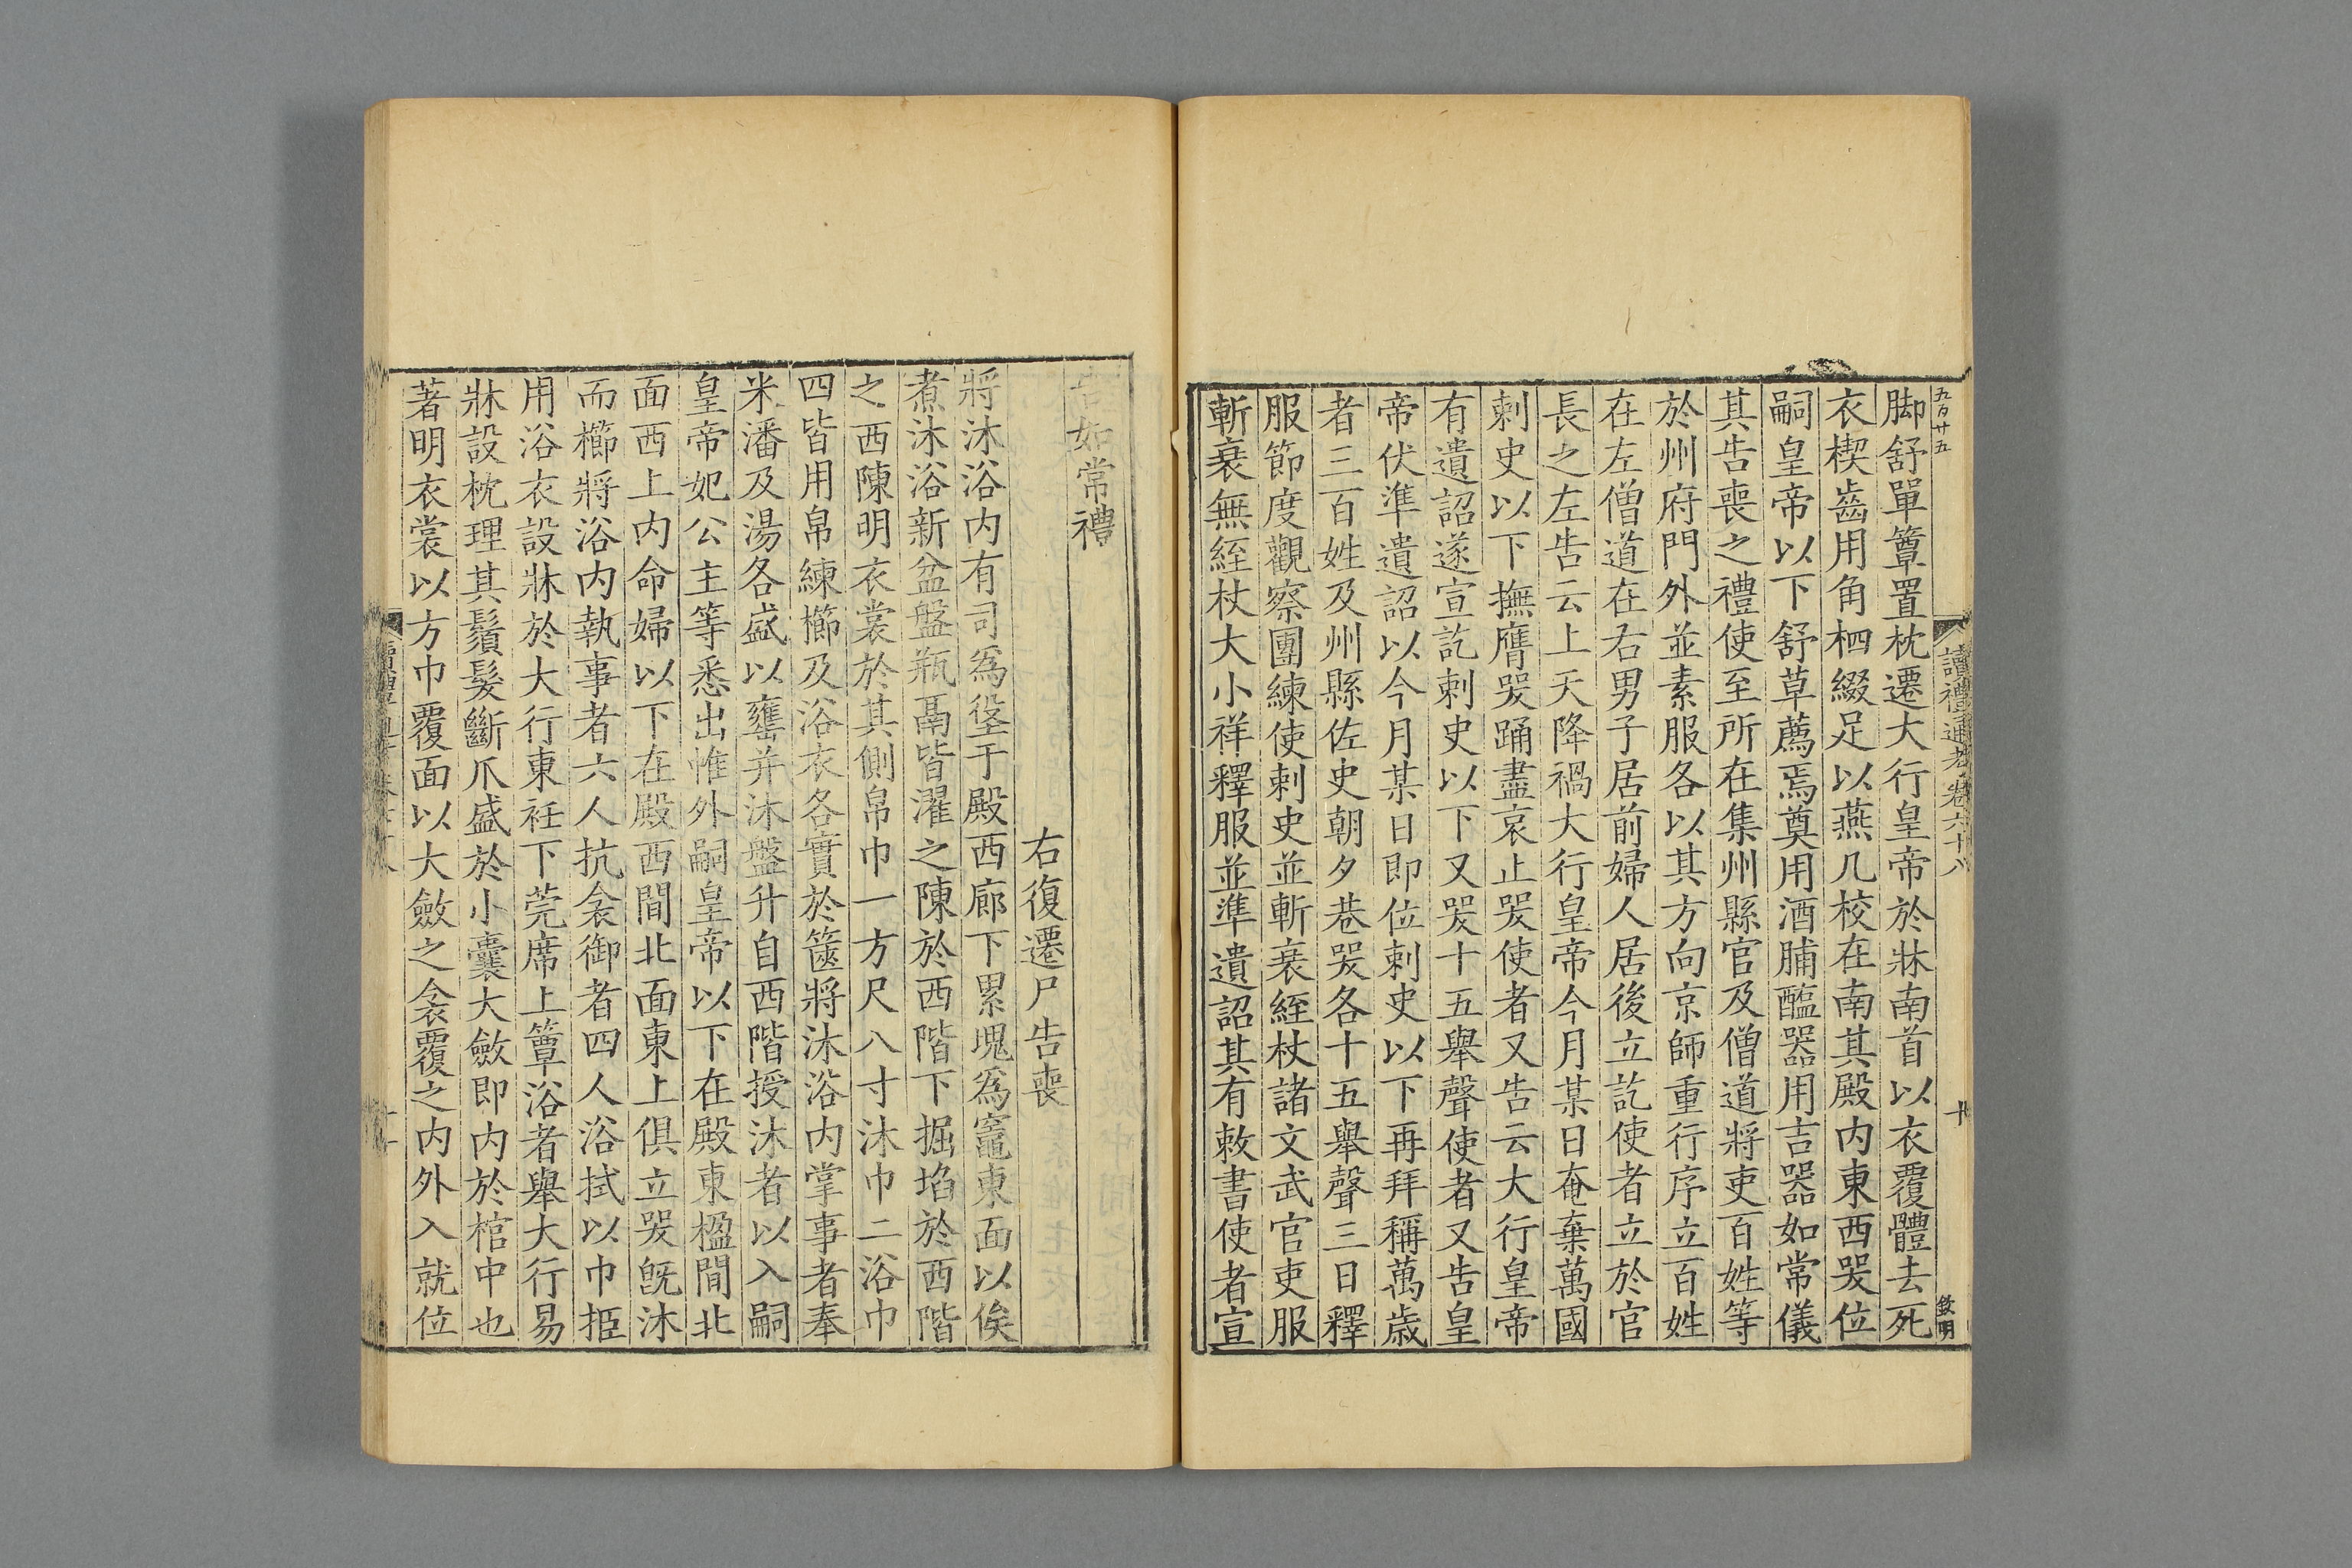 五百廿五
讀禮通考卷六十八
十
欽明
脚舒單簟置枕遷大行皇帝於牀南首以衣覆體去死
衣楔齒用角柶綴足以燕几校在南其殿内東西哭位
嗣皇帝以下舒草薦焉奠用酒脯醢器用吉器如常儀
其告喪之禮使至所在集州縣官及僧道將吏百姓等
於州府門外並素服各以其方向京師重行序立百姓
在左僧道在右男子居前婦人居後立訖使者立於官
長之左告云上天降禍大行皇帝今月某日奄棄萬國
刺史以下撫膺哭踊盡哀止哭使者又告云大行皇帝
有遺詔遂宣訖刺史以下又哭十五舉聲使者又告皇
帝伏準遺詔以今月某日即位刺史以下再拜稱萬歳
者三百姓及州縣佐史朝夕巷哭各十五舉聲三日釋
服節度觀察團練使刺史並斬衰絰杖諸文武官吏服
斬衰無絰杖大小祥釋服並準遺詔其有敕書使者宣
告如常禮
右復遷尸告喪
將沐浴内有司爲垼于殿西廊下累塊爲竈東面以俟
煮沐浴新盆盤瓶鬲皆濯之陳於西階下掘坎於西階
之西陳明衣裳於其側帛巾一方尺八寸沐巾二浴巾
四皆用帛練櫛及浴衣各實於篋將沐浴内掌事者奉
米潘及湯各盛以罋并沐盤升自西階授沐者以入嗣
皇帝妃公主等悉出惟外嗣皇帝以下在殿東楹間北
面西上内命婦以下在殿西間北面東上俱立哭旣沐
而櫛將浴内執事者六人抗衾御者四人浴拭以巾挋
用浴衣設牀於大行東衽下莞席上簟浴者舉大行易
牀設枕理其鬚髮斷爪盛於小囊大斂即内於棺中也
著明衣裳以方巾覆面以大斂之衾覆之内外入就位